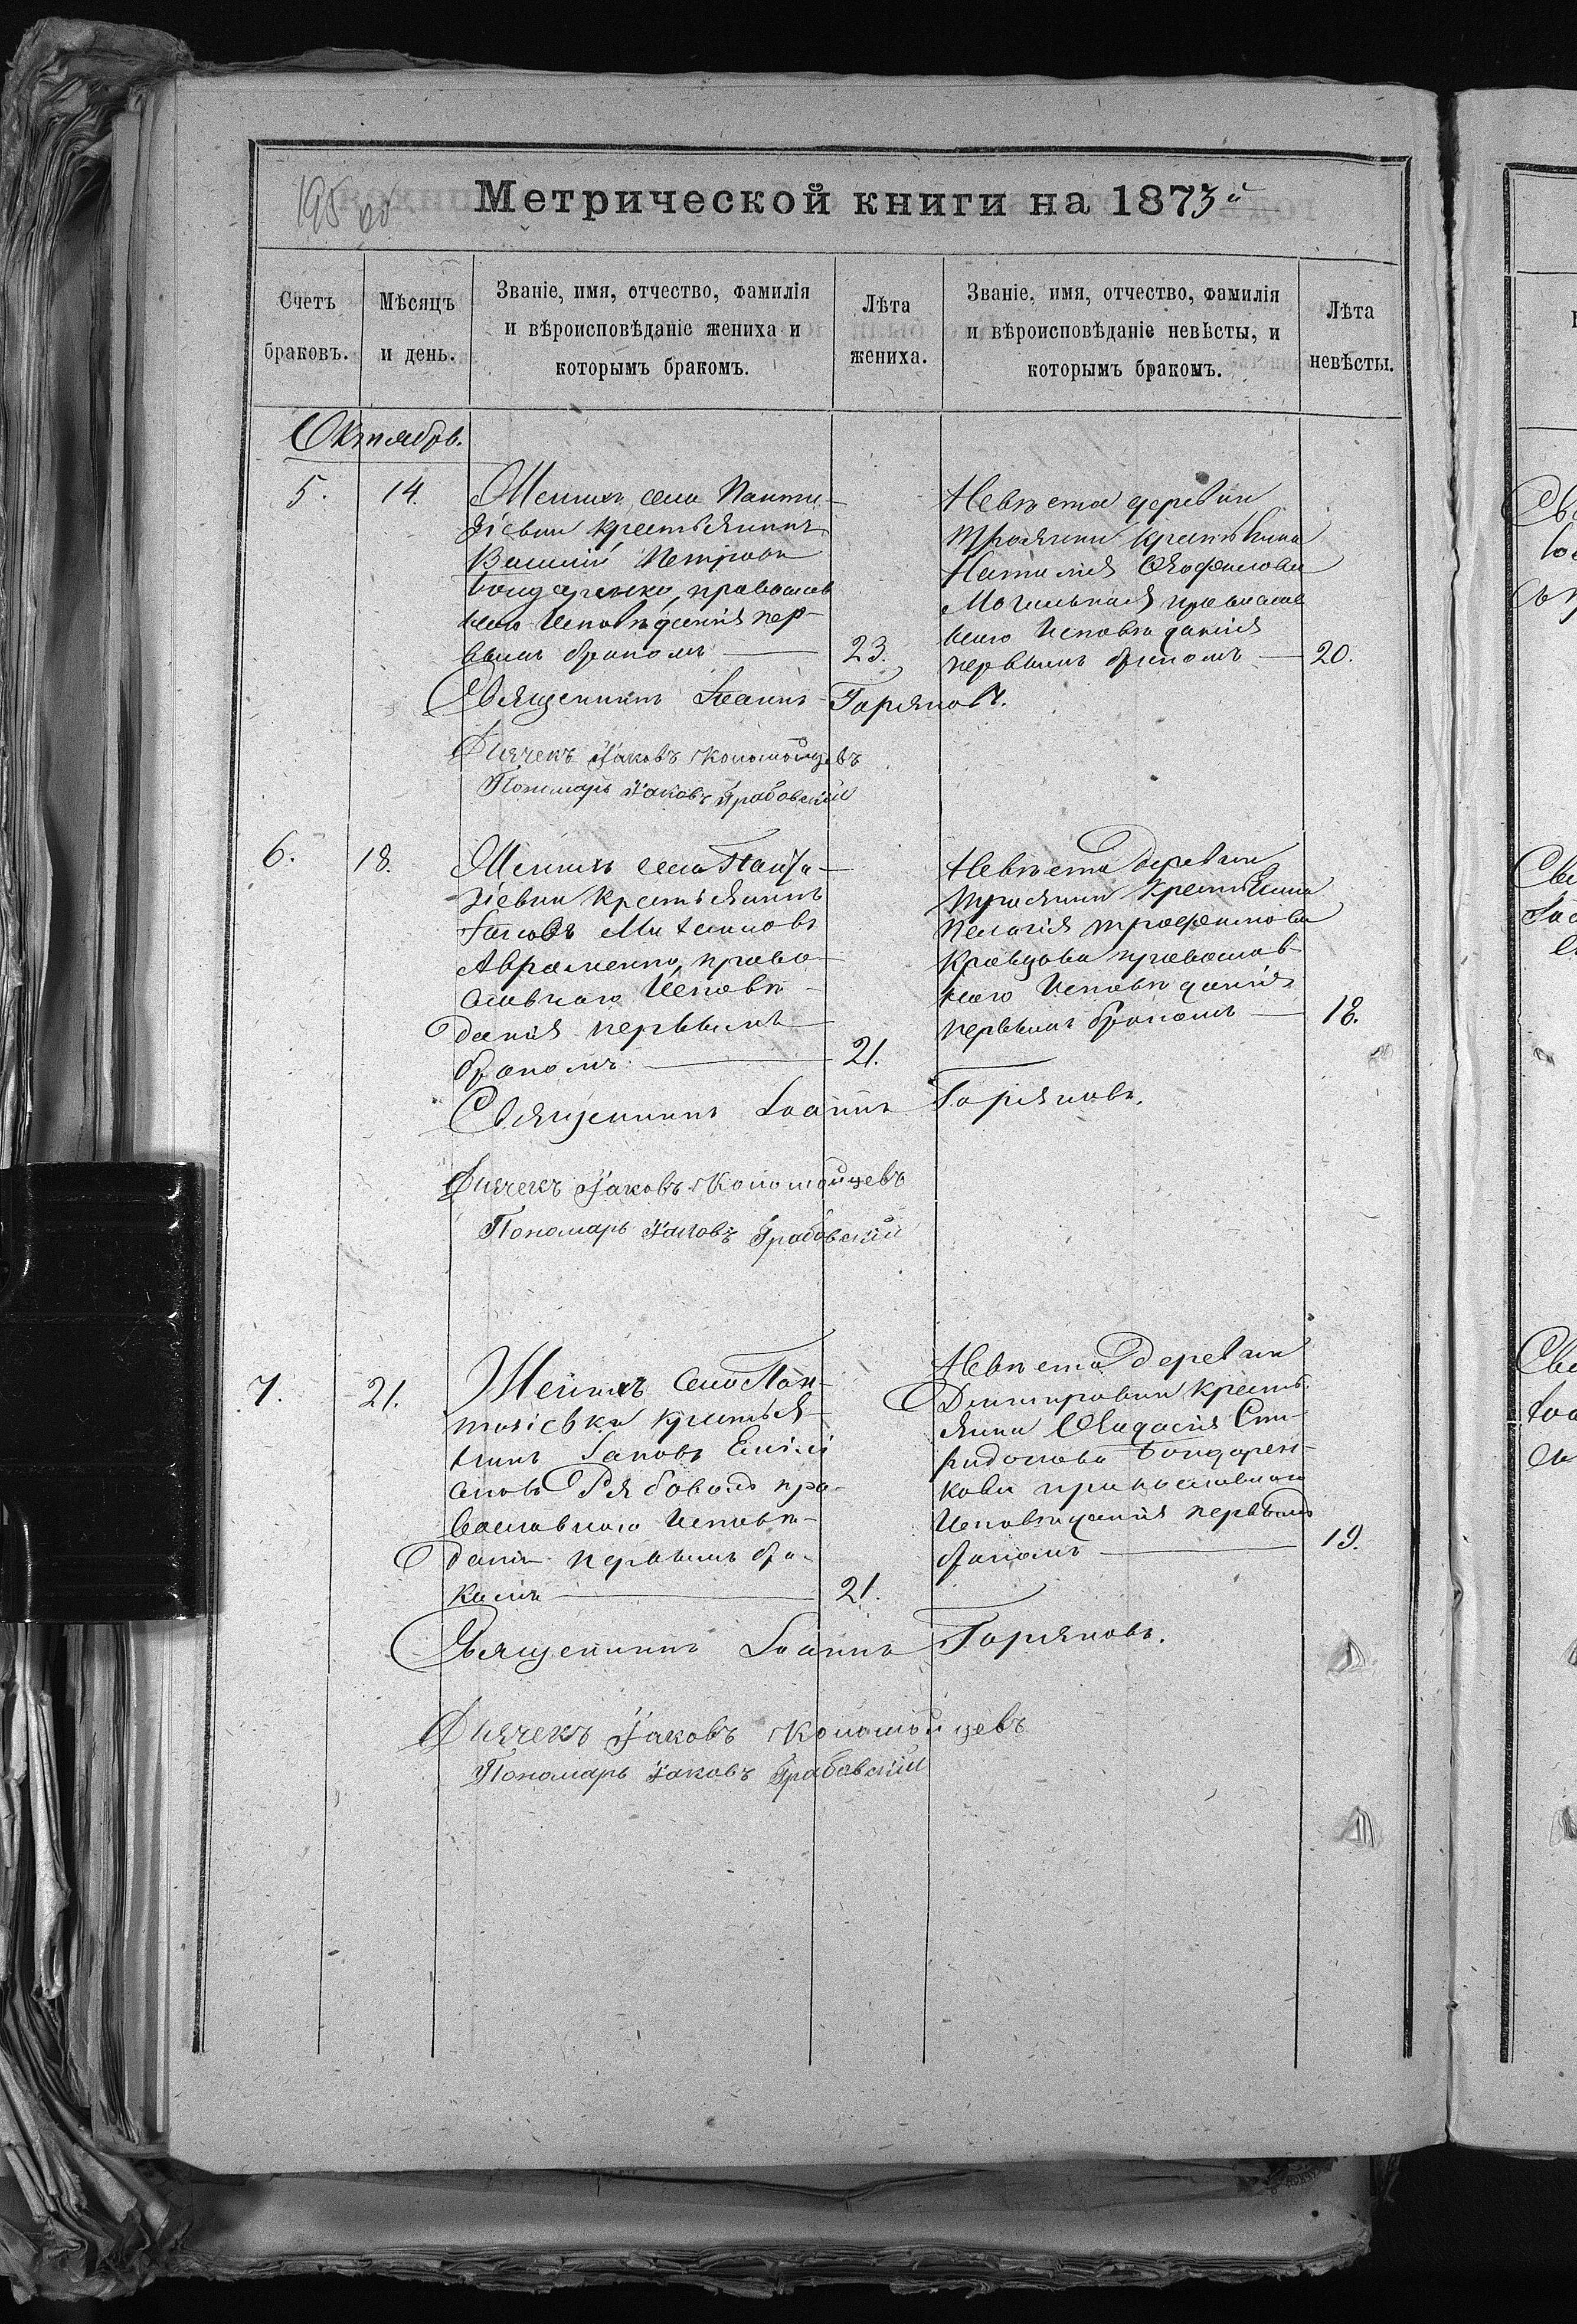 195 об
Метрической книги на 1873й
Счетъ браковъ.
Мѣсяцъ и день.
Званіе, имя, отчество, фамилія
и вѣроисповѣданіе жениха и
которымъ бракомъ.
Лѣта жениха.
Званіе, имя, отчество, фамилія
и вѣроисповѣданіе невѣсты, и
которымъ бракомъ.
Лѣта невѣсты.
Октябрь.
5.
14.
Женихъ села Панта-
зіевки крестьянинъ
Василій Петровъ
Бондаренко, православ
наго Исповѣданія пер-
вымъ бракомъ
23.
Невѣста деревни
Трояжки крестьянка
Наталія
Могильная православ
наго Исповѣданія
первымъ бракомъ
20.
Священникъ Іоаннъ Горяновъ.
Дьячекъ Іаковъ Коломойцевъ
Пономарь Іаковъ Грабовскій
6.
18.
Женихъ села Панта-
зіевки Крестьянинъ
Іаковъ
Авраменко, право-
славнаго Исповѣ-
данія первымъ
бракомъ
21.
Невѣста Деревни
Крестьянка
Пелагія Трофимова
Кравцова православ-
наго Исповѣданія
первымъ бракомъ
18.
Священникъ Іоаннъ Горяновъ.
Дьячекъ Іаковъ Коломойцевъ
Пономарь Іаковъ Грабовскій
7.
21.
Женихъ Села Пан-
тазіевки крестья-
нинъ Іаковъ
Рябовалъ пра-
вославнаго Исповѣ-
данія первымъ бра-
комъ
21.
Невѣста Деревни
Димитровки Крестья
янка Спи-
ридонова Бондарен-
кова православнаго
Исповѣданія первымъ
бракомъ
19.
Священникъ Іоаннъ Горяновъ.
Дьячекъ Іаковъ Коломойцевъ
Пономарь Іаковъ Грабовскій